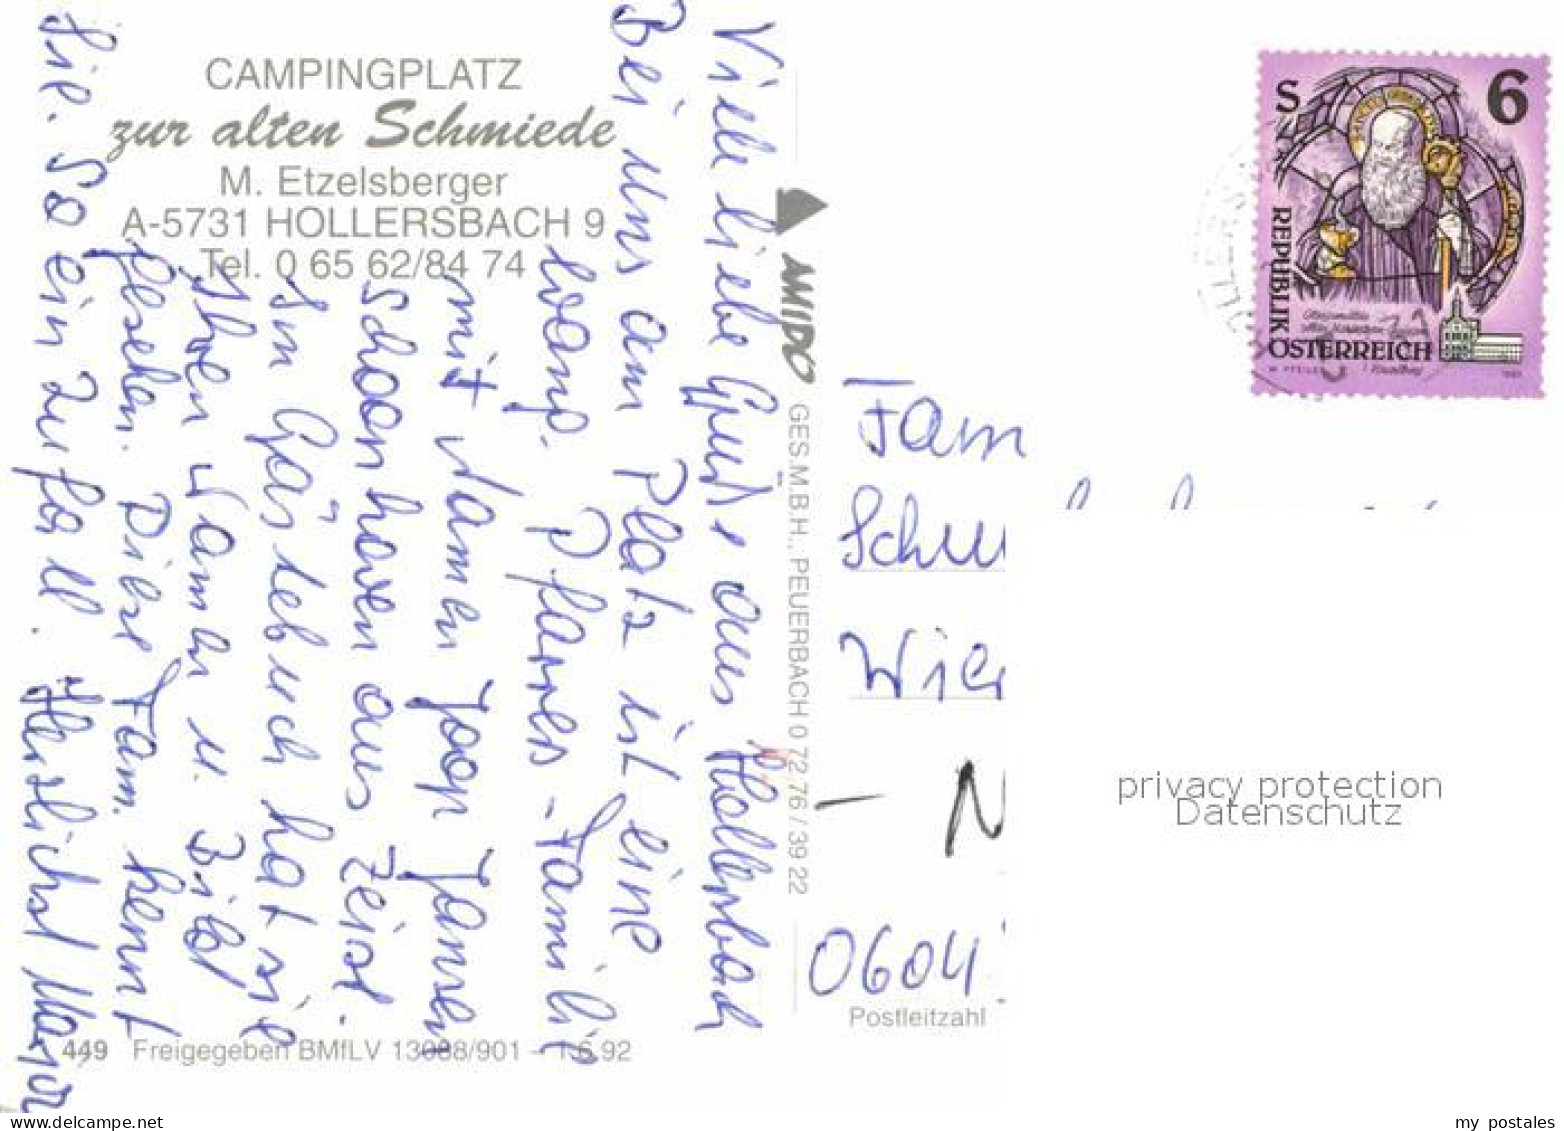 CAMPINGPLATZ
zur alten Schmiede
M. Etzelsberger
A-5731 HOLLERSBACH 9
Tel. 0 65 62/84 74
Viele liebe Grüße aus Hollersbach
Bei uns am Platz ist eine
Pfarrers-Familie
mit Namen Joop Jansen
Schoonhoven aus Zeist.
Im Gästebuch hat sie
Ihren Namen u. Bild
gesehen. Diese Fam. kennt
Sie. So ein Zufall. Herzlichst Maria
449 Freigegeben BMfLV 13088/901 – 1.6.92
AMIDO GES.M.B.H., PEUERBACH 0 72 76 / 39 22
S 6
REPUBLIK
ÖSTERREICH
Fam
Schu
Wie
- N
0604
Postleitzahl
privacy protection
Datenschutz
www.delcampe.net
my_postales